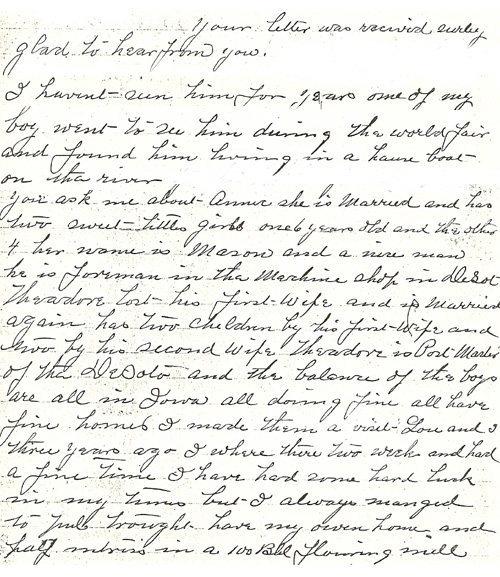 your letter was recived surly
glad to hear from you.
I havent seen him for years one of my
boy went to see him during the world fair
and found him living in a hause boat
on tha river
you ask me about Annie she is Married and has
two sweet little girls one 6 years old and the other
4 her name is Mason and a nice man
he is foreman in tha Machine shop in DeSot
Theadore lost his first Wife and is Married
again has two children by his first Wife and
two by his second Wife Theadore is Post Master
of tha DeSoto and the balance of the boys
are all in Iowa all doing fine all have
fine homes I made them a visit Lou and I
three years ago I where there two week and had
a fine time I have had some hard luck
in my times but I always manged
to pull trought have my owen home and
half intriss in a 100 Bbl flouring mill